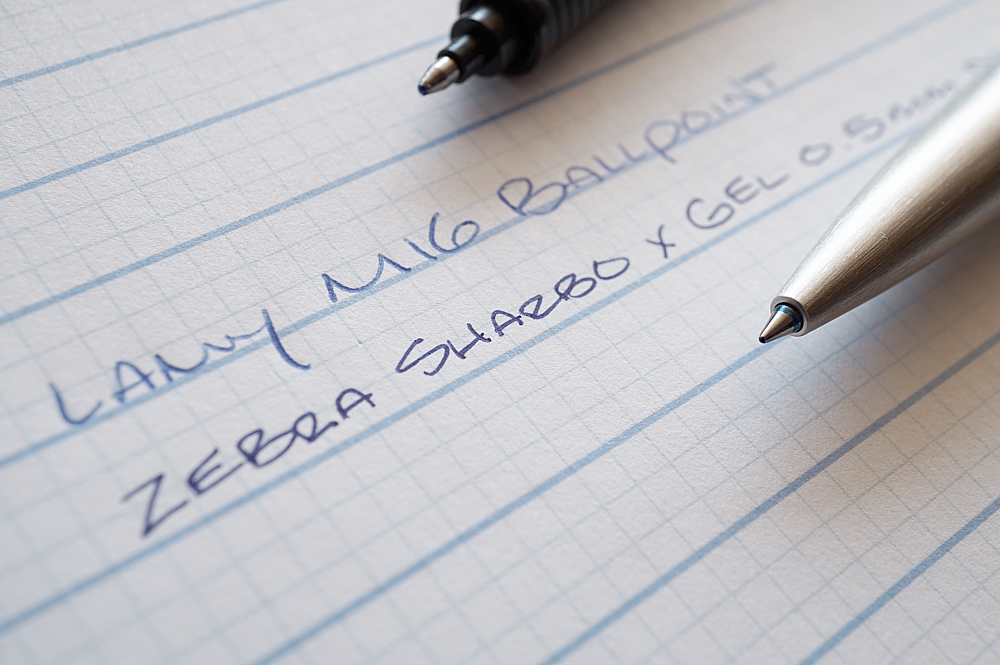 LAMY M16 BALLPOINT
ZEBRA SHARBO X GEL 0.5mm